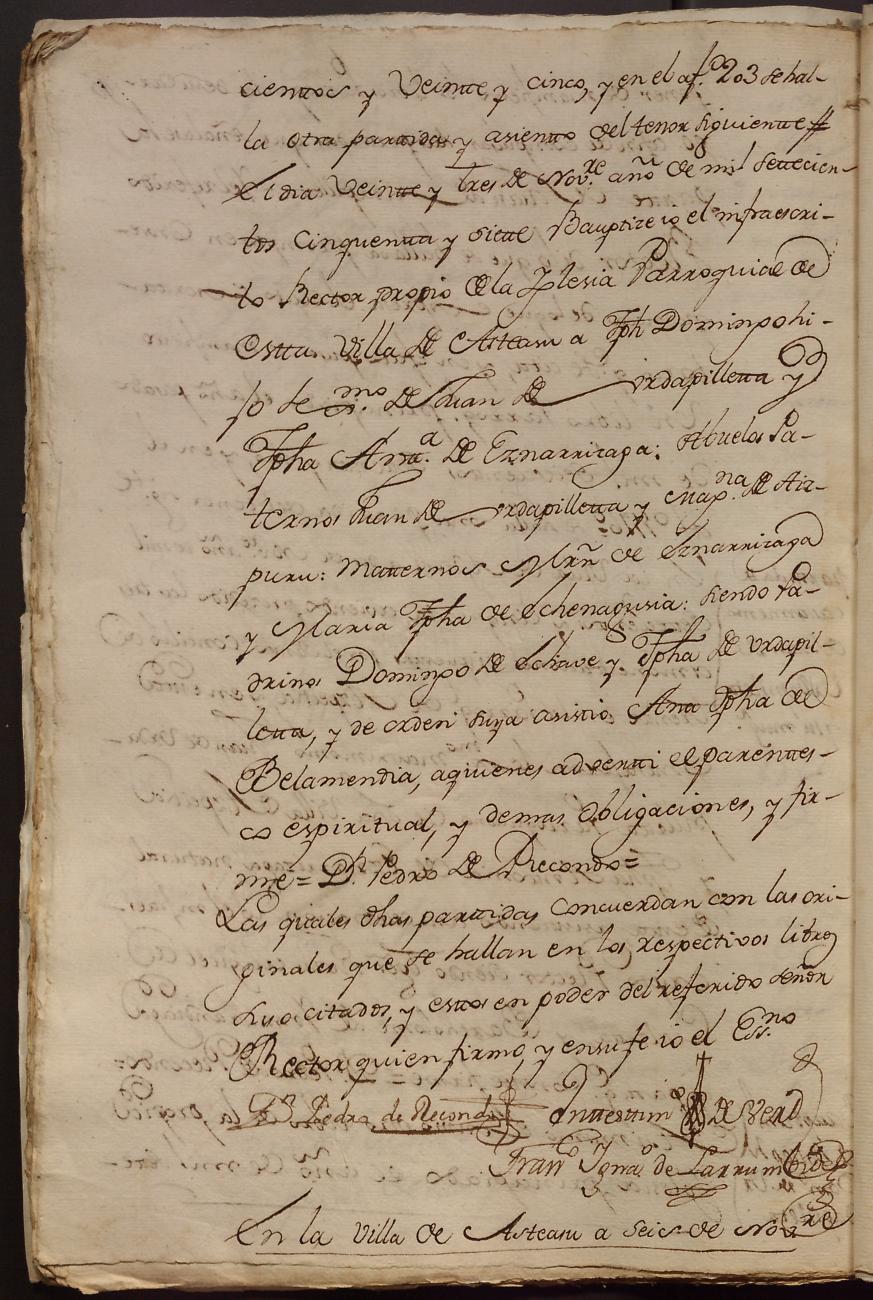 cientos y Veinte y cinco, y en el af.º 203 se hal-
la otra partida y asiento del tenor siguiente #
El dia Veinte y tres de Nov.re año de mil Settecien-
tos Cinquenta y siette Bauptize io el infraescri-
to Rector propio de la Iglesia Parroquial de
estta Villa de Asteasu a Jph Domingo hi-
jo de mo. de Juan de Urdapilletta y
Jpha Ant.a de Eznarrizaga: Abuelos Pa-
ternos Juan de Urdapilletta y Mag.na de Aiz-
puru: Matternos Mrñ de Eznarrizaga
y Maria Jpha de Echenagusia: siendo Pa-
drinos Domingo de Echave y Jpha de Urdapil-
letta, y de orden suya asistio Ana Jpha de
Belamendia, a quienes advertti el parenttes-
co espiritual, y demas Obligaciones, y fir-
mé = D.n Pedro de Recondo =
Las quales dhas partidas Concuerdan con las ori-
ginales que se hallan en los respectivos libros
suso citados, y estos en poder del referido Señor
Rector quien firmo, y en su fe io el Ess.no
D.n Pedro de Recondo En testtim.o de Verd
Fran.co Ygna.o de Larrumbide
En la Villa de Asteasu a Seis de Nov.re